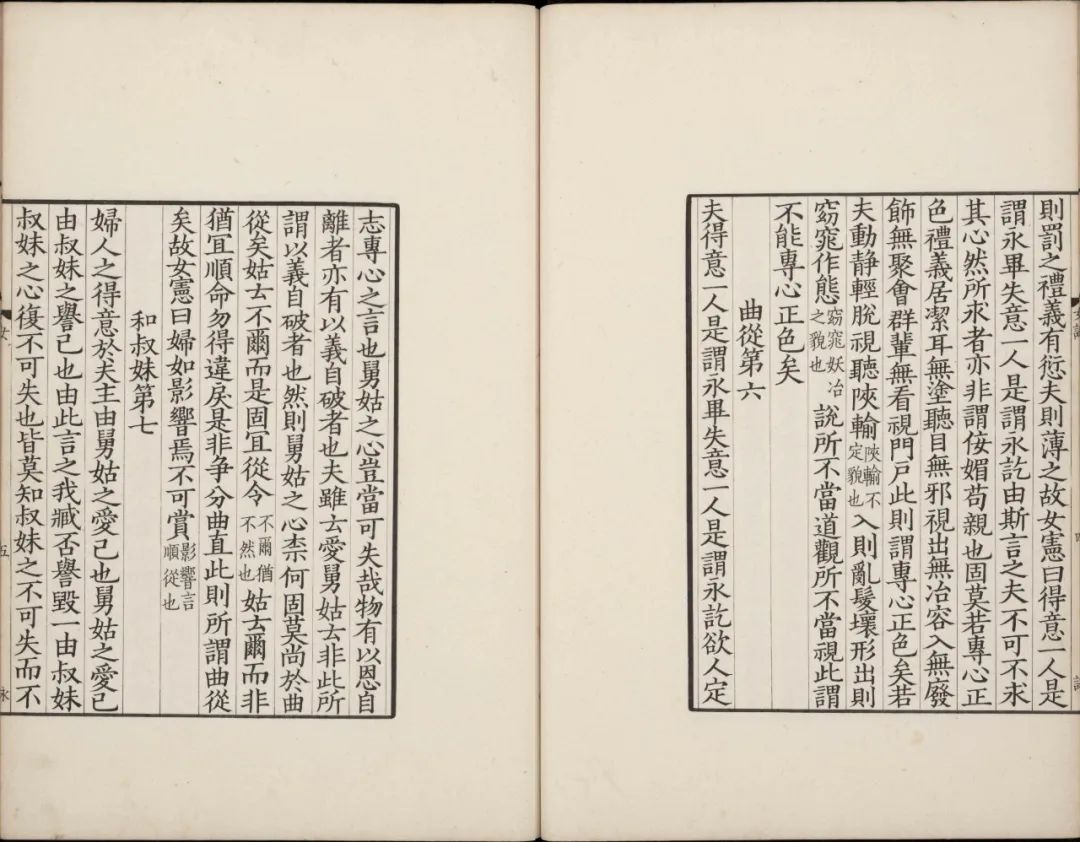 則罰之禮義有愆夫則薄之故女憲曰得意一人是
謂永畢失意一人是謂永訖由斯言之夫不可不求
其心然所求者亦非謂佞媚苟親也固莫若專心正
色禮義居潔耳無塗聽目無邪視出無冶容入無廢
飾無聚會群輩無看視門戶此則謂專心正色矣若
夫動静輕脫視聽陜輸陜輸不定貌也入則亂髮壞形出則
窈窕作態窈窕妖冶之貌也說所不當道觀所不當視此謂
不能專心正色矣
曲從第六
夫得意一人是謂永畢失意一人是謂永訖欲人定
志專心之言也舅姑之心豈當可失哉物有以恩自
離者亦有以義自破者也夫雖云愛舅姑云非此所
謂以義自破者也然則舅姑之心柰何固莫尚於曲
從矣姑云不爾而是固冝從令不爾猶不然也姑云爾而非
猶冝順命勿得違戾是非争分曲直此則所謂曲從
矣故女憲曰婦如影響焉不可賞影響言順從也
和叔妹第七
婦人之得意於夫主由舅姑之愛己也舅姑之愛己
由叔妹之譽己也由此言之我臧否譽毀一由叔妹
叔妹之心復不可失也皆莫知叔妹之不可失而不
女
五